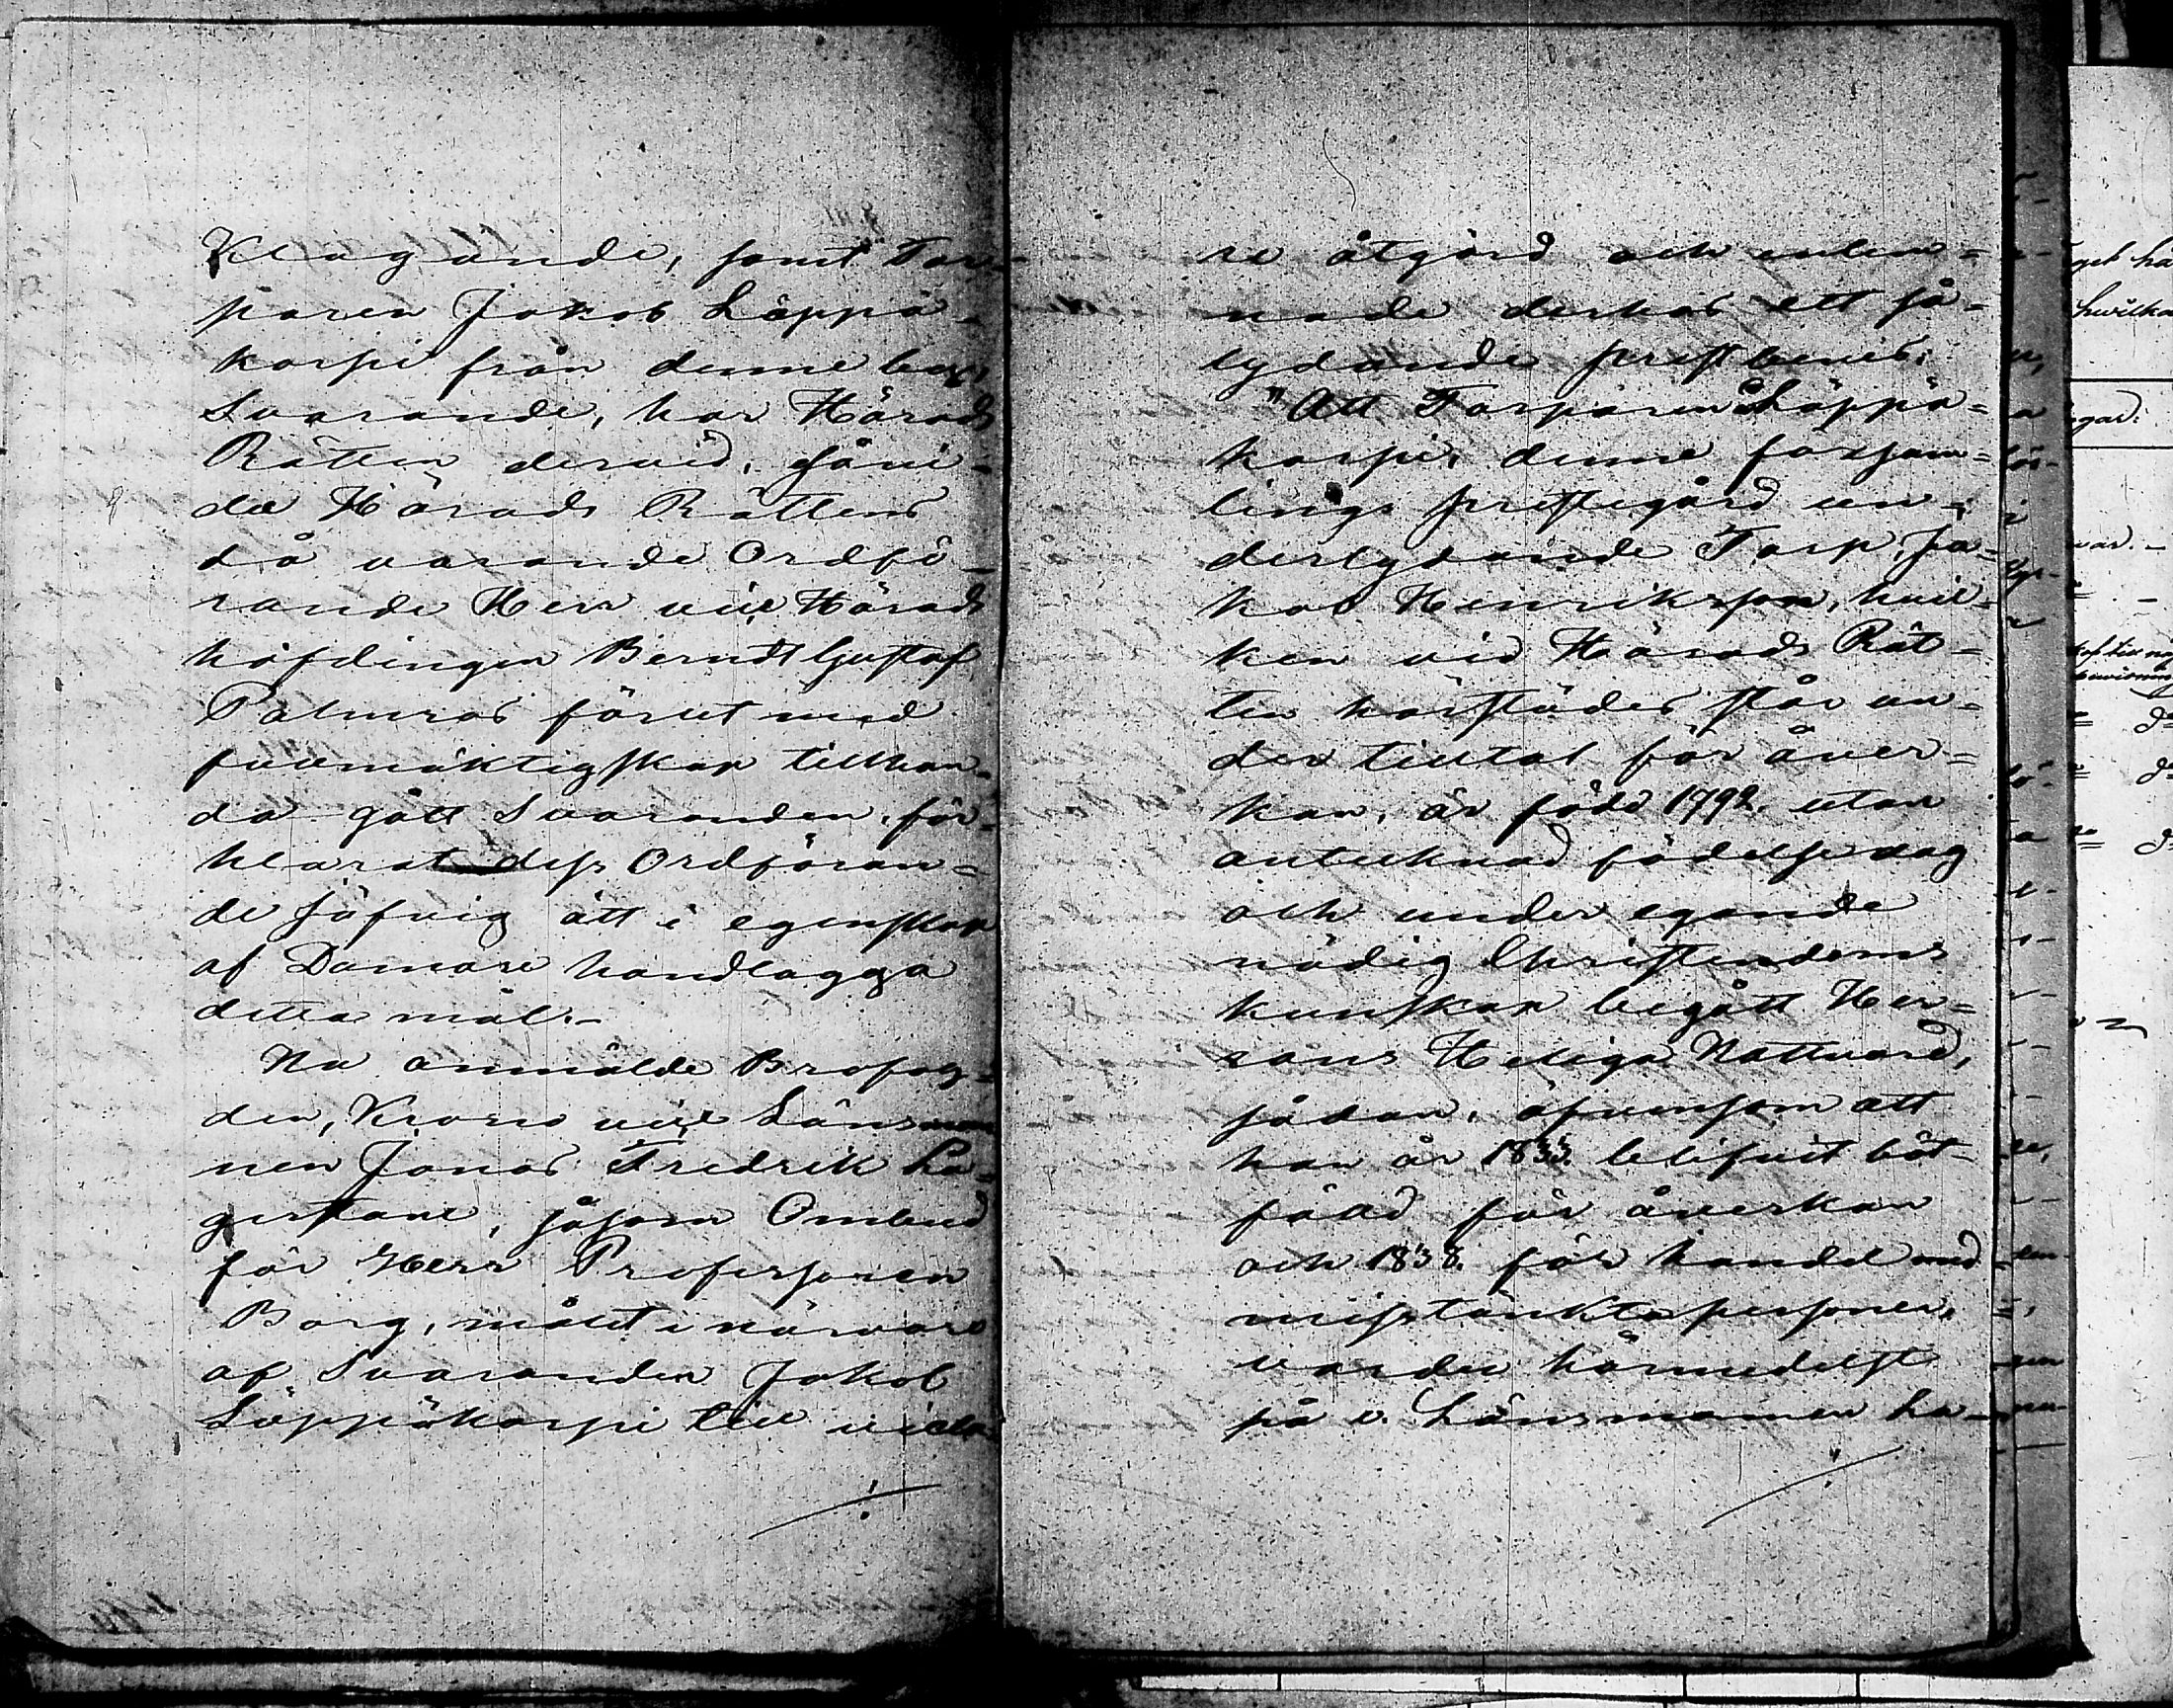 Klagande, samt Tor-
paren Jakob Läppä-
korpi från denne by,
Svarande, har Härads
Rätten dervid, jäm-
da Härads Rättens
då varande Ordfö-
rande Herr vice Härads
höfdingen Berndt Gustaf
Palmros förut med
fullmäktigskap tillhan-
da gått Svaranden, för-
klarat dess Ordföran-
de jäfvig att i egenskap
af Domare handlägga
detta mål.-
Nu anmälde Brofog-
den, Krono vice Länsman
nen Jonas Fredrik La-
gerstane, såsom Ombud
för Herr Professoren
Borg, målet i närvaro
af Svaranden Jakob
Läppäkorpi till vida-
re åtgärd och inlem-
nade derhos ett så-
lydande prestbevis:
"Att Torparen å Läppä-
korpi, denne forsam-
lings prestegård un-
derlydande Torp, Ja-
kob Henriksson, hvil-
ken vid Härads Rät-
ten härstädes står un-
der tilltal för åver-
kan, är född 1792. utan
antecknad födelsedag
och under egande
nödig Christendoms
kunskap begått Her-
rans Heliga Nattvard,
sådan, äfvensom att
han år 1833. blifvit böt-
fälld för åverkan
och 1838. för handel med
misstänkta personer,
varder härmedelst
på v. Länsmannen La-